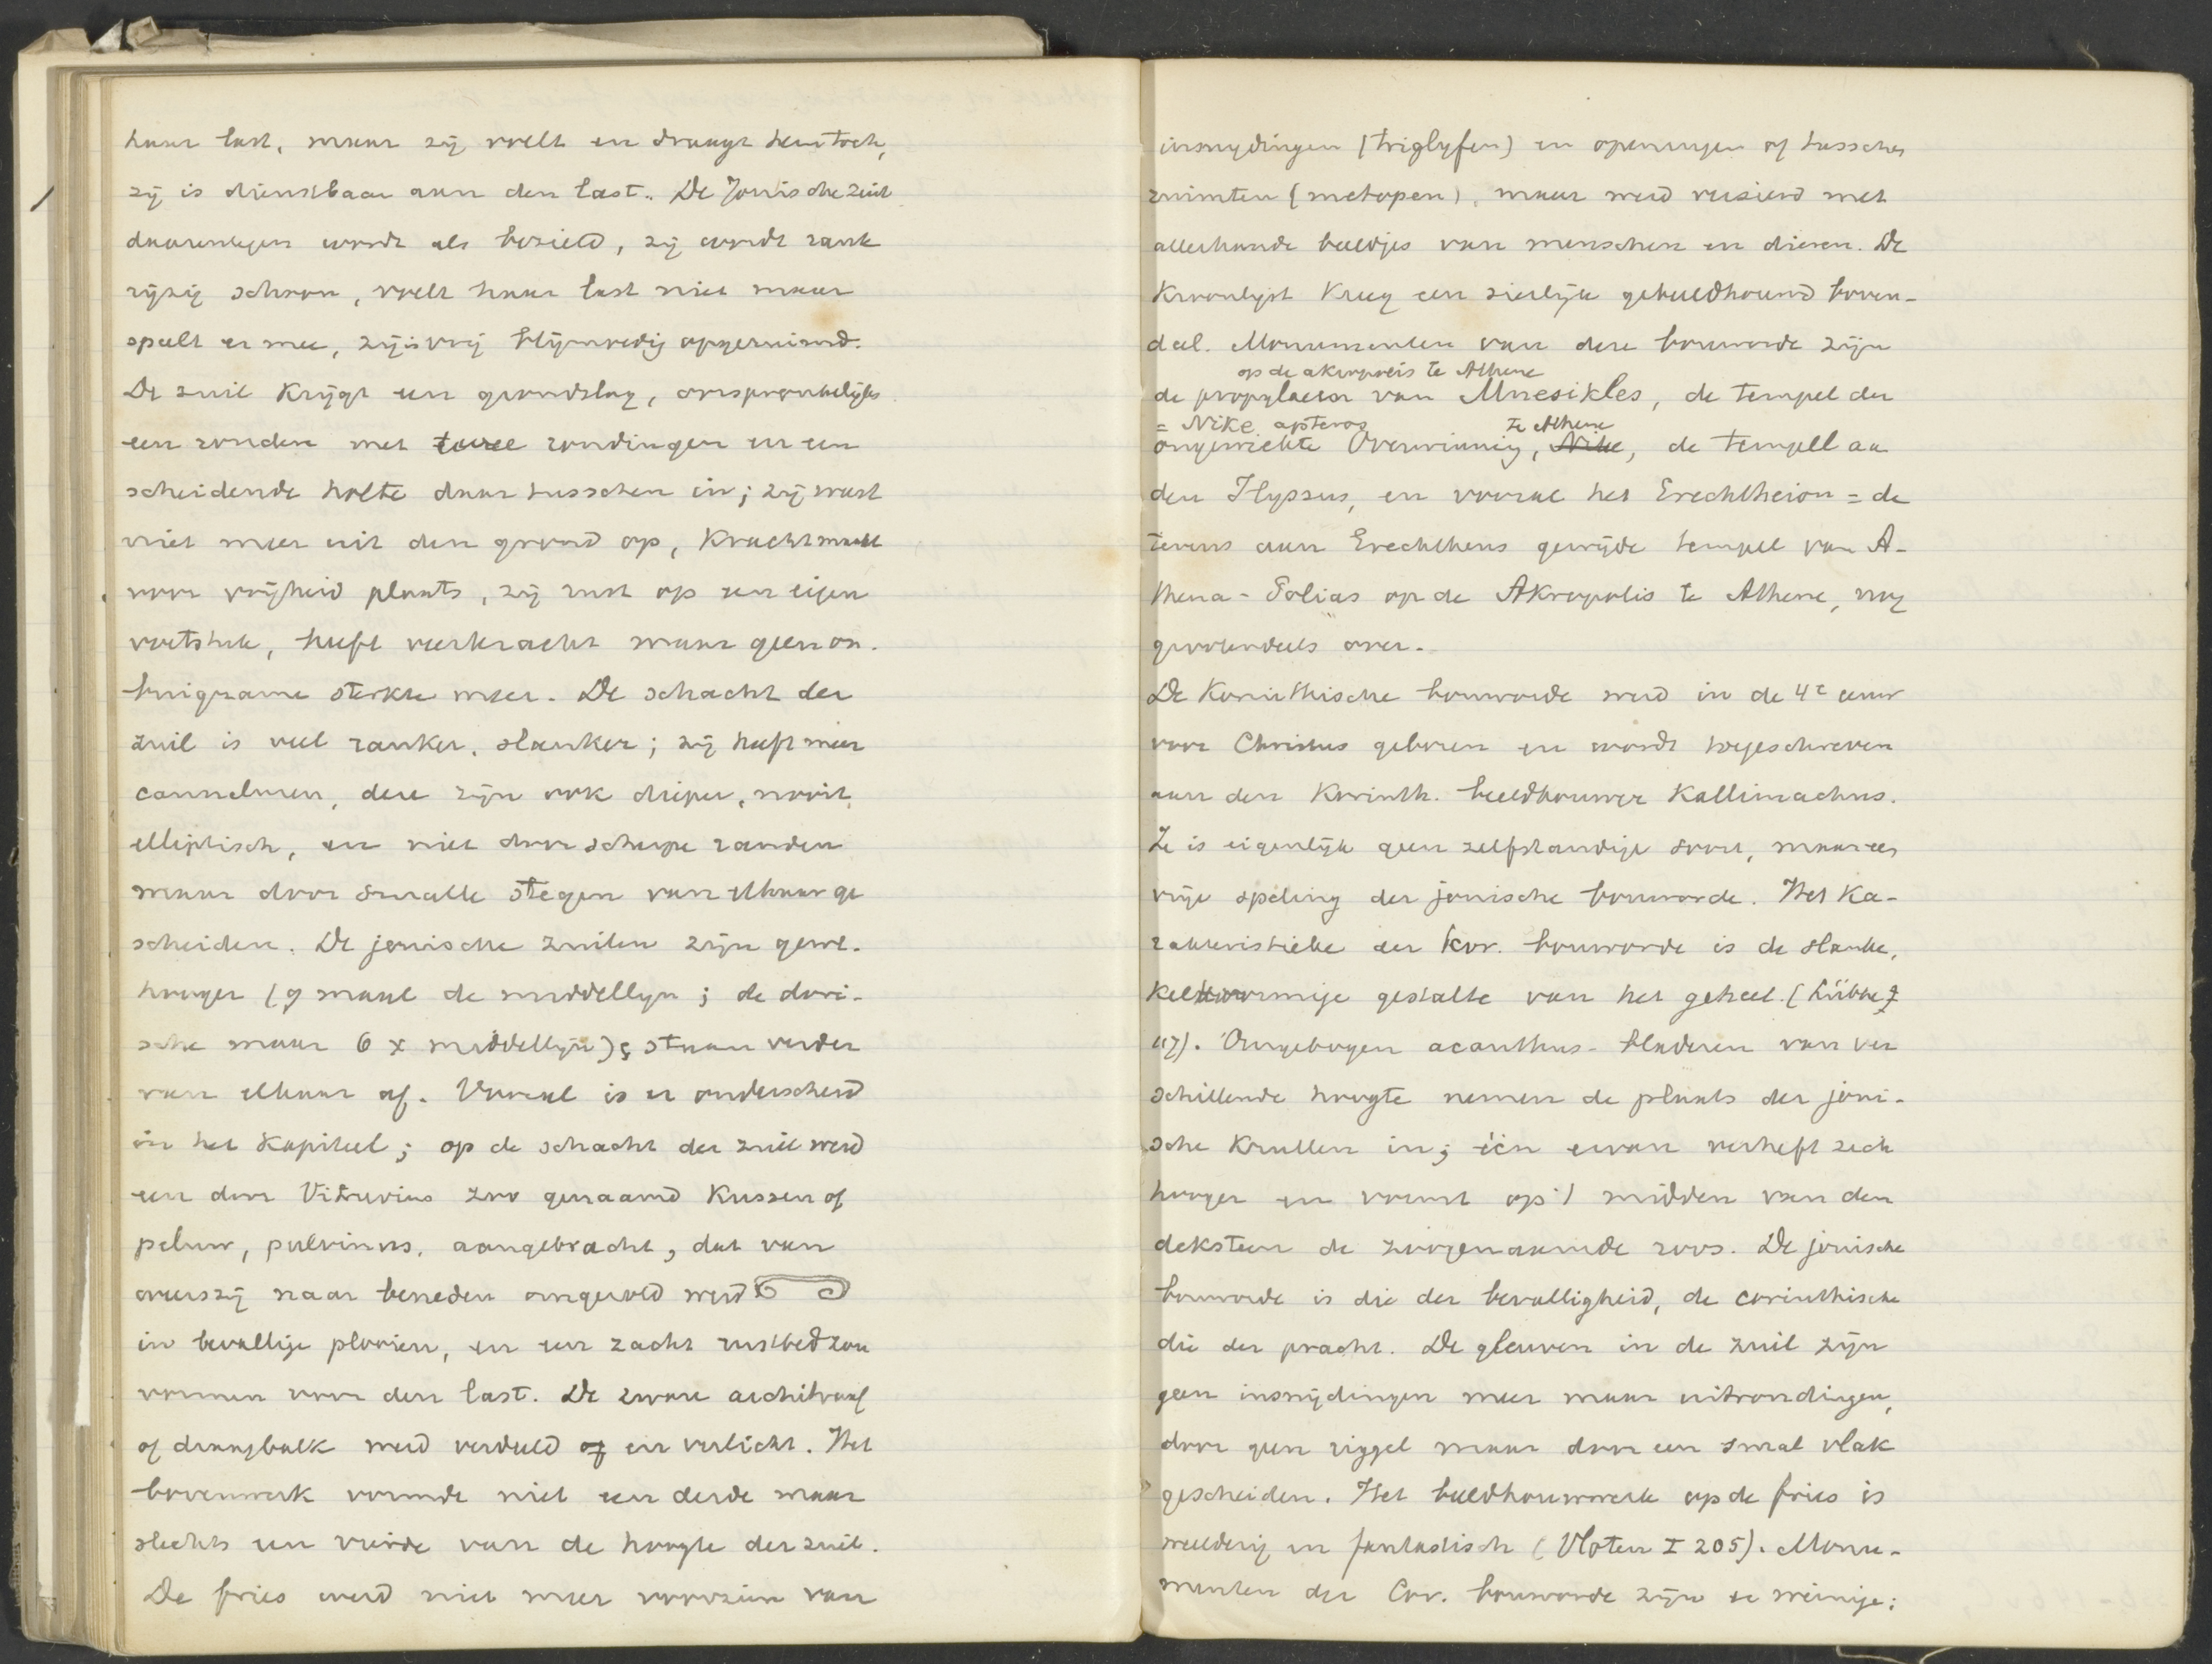 haar last, maar zij voelt en draagt hem toch,
zij is dienstbaar aan den last. De Jonische zuil
daarentegen wordt als bezield, zij wordt rank
rijzig schoon, voelt haar last niet maar
speelt er mee, zij is vrij blijmoedig opgeruimd.
De zuil krijgt een grondslag, oorspronkelijk
een ronden met twee rondingen en een
scheidende holte daar tusschen in; zij wast
niet meer uit den grond op, kracht maakt
voor vrijheid plaats, zij rust op een eigen
voetstuk, heeft veerkracht maar geen on-
buigzame sterkte meer. De schacht der
zuil is veel ranker, slanker; zij heeft meer
canneluren, deze zijn ook dieper, nooit
elliptisch, en niet door scherpe randen
maar door smalle stegen van elkaar ge
scheiden. De jonische zuilen zijn gew.
hooger (9 maal de middellijn; de dori-
sche maar 6 x middellijn); staan verder
van elkaar af. Vooral is er onderscheid
in het kapiteel; op de schacht der zuil werd
een door Vitruvius zoo genaamd kussen of
peluw, pulvinus, aangebracht, dat van
weerszij naar beneden omgerold werd
in bevallige plooien, en een zacht rustbed zou
vormen voor den last. De zware architraaf
of draagbalk werd verdeeld en verlicht. Het
bovenwerk vormde niet een derde maar
slechts een vierde van de hoogte der zuil.
De fries werd niet meer voorzien van
insnydingen (triglyfen) en openingen of tusschen
ruimten (metopen), maar werd versierd met
allerhande beeldjes van menschen en dieren. De
Kroonlijst kreeg een sierlijk gebeeldhouwd boven-
deel. Monumenten van deze bouworde zijn
op de akropolis te Athene
de propylaeen van Mnesikles, de tempel der
= Nike apteros te Athene
ongewiekte Overwinning, Nike, de tempell aa
den Ilyssus, en vooral het Erechtheion = de
tevens aan Erechtheus gewijde tempel van A-
thena-Polias op de Akropolis te Athene, nog
grootendeels over.
De Korinthische bouworde werd in de 4e eeuw
voor Christus geboren en wordt toegeschreven
aan den Korinth. beeldhouwer Kallimachus.
Ze is eigenlijk geen zelfstandige soort, maar een
vrije speling der jonische bouworde. Het Ka-
rakteristieke der kor. bouworde is de slanke,
kelkvormige gestalte van het geheel. (Lübke I
117). Omgebogen acanthus-bladeren van ver
schillende hoogte nemen de plaats der joni-
sche krullen in; één ervan verheft zich
hooger en vormt op 't midden van den
deksteen de zoogenaamde roos. De jonische
bouworde is die der bevalligheid, de corinthische
die der pracht. De gleuven in de zuil zijn
geen insnijdingen meer maar uitrondingen,
door geen riggel maar door een smal vlak
gescheiden. Het beeldhouwwerk op de fries is
weelderig en fantastisch (Vloten I 205). Monu-
menten der Cor. bouworde zijn er weinige: